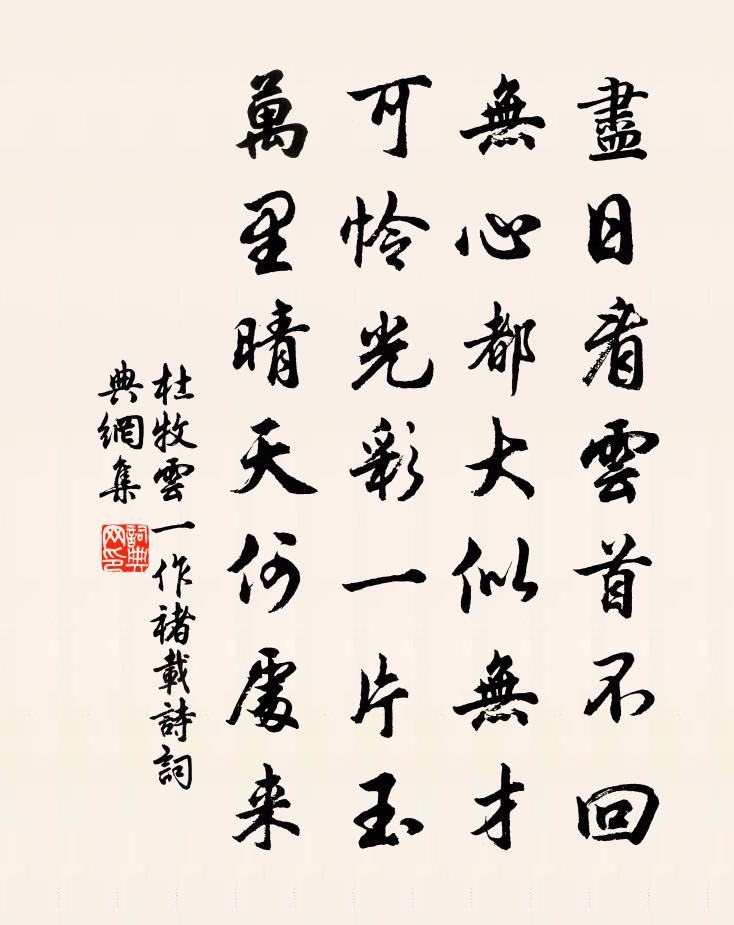 盡日看雲首不回
無心都大似無才
可怜光彩一片玉
萬里晴天何處来
杜牧雲一作褚載詩詞
典網集
詞典
网印